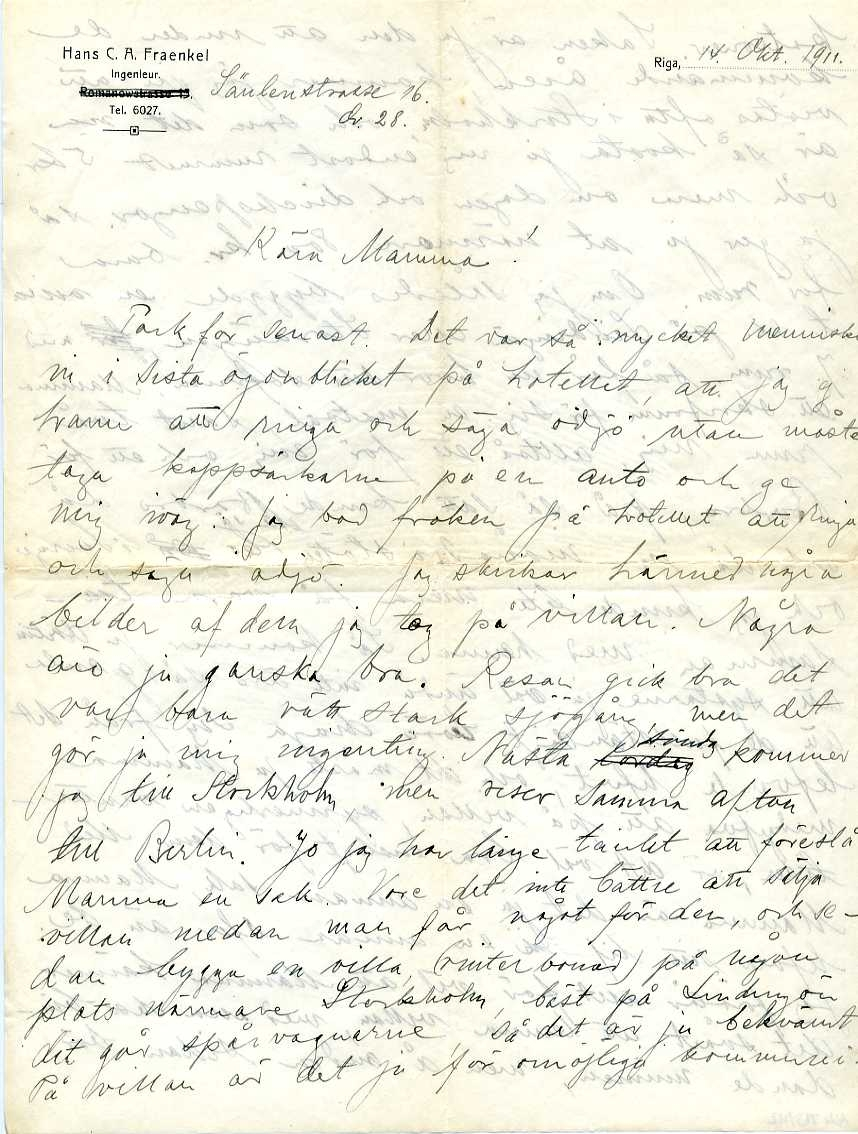 Hans C. A. Fraenkel
Ingenieur.
Romanowstrasse 13.
Tel. 6027.
Säulenstrasse 16.
Qv. 28.
Riga, 14. Okt. 1911.
Kära Mamma!
Tack för senast. Det var så mycket menniskor
ni i sista ögonblicket på hotellet, att jag ej
hann att ringa och säga adjö utan måste
taga kappsäckarne på en auto och ge
mig iväg. Jag bad fröken på hotellet att ringa
och säga adjö. Jag skickar härmed några
bilder af dem jag tog på villan. Några
äro ju ganska bra. Resan gick bra det
var bara rätt stark sjögång, men det
gör ja mig ingenting. Nästa lördag söndag kommer
jag till Stockholm, men reser samma afton
till Berlin. Jo jag har länge tänkt att föreslå
Mamma en sak. Vore det inte bättre att sälja
villan medan man får något för den, och se-
dan bygga en villa, (vinterbonad) på någon
plats närmare Stockholm, bäst på Lidingön
dit går spårvagnarne, så det är ju bekvämt
På villan är det ju för omöjliga kommuni-